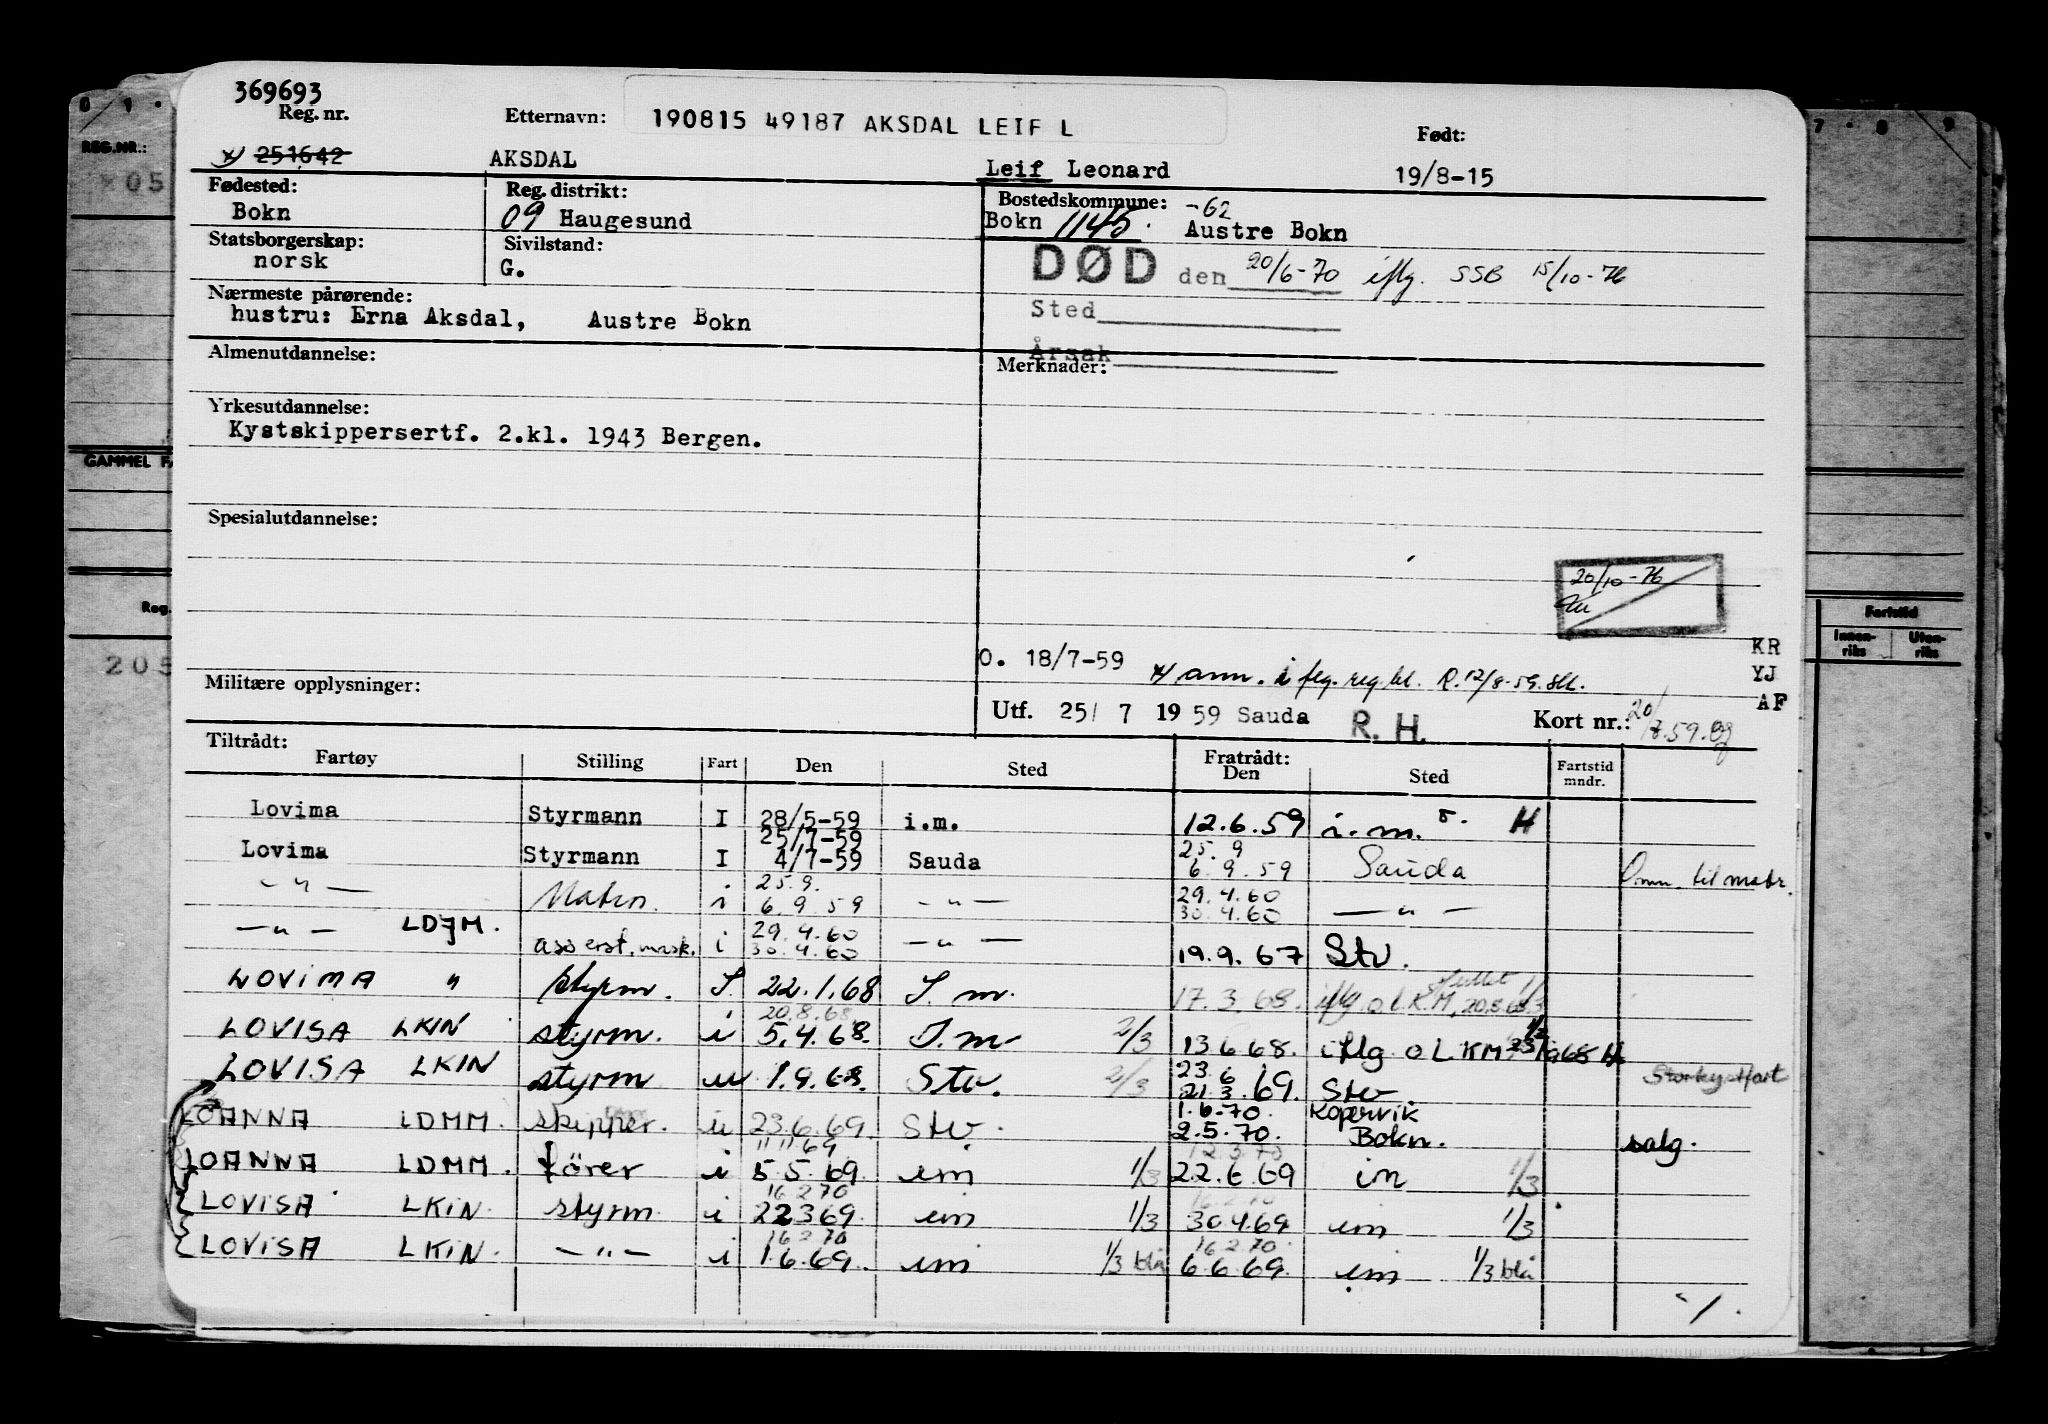 369693
Reg. nr.
Etternavn: 190815 49187 AKSDAL LEIF L
Født:
x) 251642 AKSDAL Leif Leonard 19/8-15
Fødested: Reg. distrikt: Bostedskommune: -62
Bokn 09 Haugesund Bokn 1145. Austre Bokn
Statsborgerskap: Sivilstand:
norsk G. DØD den 20/6-70 iflg. SSB 15/10-76
Nærmeste pårørende: Sted
hustru: Erna Aksdal, Austre Bokn
Årsak
Almenutdannelse: Merknader:
Yrkesutdannelse:
Kystskippersertf. 2.kl. 1943 Bergen.
Spesialutdannelse:
20/10-76
O. 18/7-59 x) ann. i flg. reg. bl. R. 12/8-59.
KR
YJ
AF
Militære opplysninger:
Utf. 25/ 7 19 59 Sauda R. H. Kort nr.: 20/7.59.
Tiltrådt: Fratrådt:
Fartøy Stilling Fart Den Sted Den Sted Fartstid mndr.
Lovima Styrmann I 28/5-59 i.m. 12.6.59 i.m. H
25/7-59 25.9
Lovima Styrmann I 4/7-59 Sauda 6.9.59 Sauda Omm. til matr.
25.9. 29.4.60
-"- Matr. i 6.9.59 -"- 30.4.60 -"-
29.4.60
-"- LDJM. ass erst. mask. i 30.4.60 -"- 19.9.67 Stv.
LOVIMA " styrm. I. 22.1.68 I.m. 17.3.68. iflg o.L.K.M, 20.8.68
20.8.68
LOVISA LKIN styrm. i 5.4.68. I.m 2/3 13.6.68. iflg o L KM
23.6
LOVISA LKIN styrm u 1.9.68. Stv. 2/3 21.3.69. Stv Storkystfart
1.6-70. Kopervik
LOANNA LDMM. skipper. u 23.6.69. Stv. 2.5.70. Bokn. salg.
11 11 69 12.3.70
LOANNA LDMM. förer i 5.5.69 im 1/3 22.6.69 im 1/3
16 2 70 16 2 70
LOVISA LKIN. styrm i 22 3 69. im 1/3 30.4.69 im 1/3
16 2 70 16.2.70.
LOVISA LKIN. -"- i 1.6.69. im 1/3 blå 6.6.69. im 1/3 blå
REG.NR.:
GAMMEL
Reg.
205
7 . 8 . 9
Fartstid
Innen-riks Uten-riks